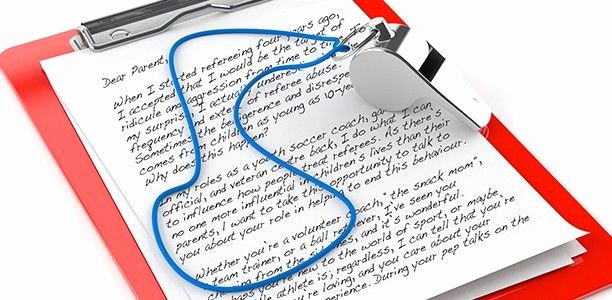 Dear Parent,
When I started refereeing four years ago,
I accepted that I would be the target of
ridicule and aggression from time to time. To
my surprise, I actually underest
frequency and extent of referee abuse.
Sometimes the belligerence and disrespe
comes from children as young as 10-yea
Why does this happen?
In my roles as a youth soccer coach, ga
official, and veteran centre back, I do what I can
to influence how people treat referees. As there's
no one more influential in children's lives than their
parents, I want to take this opportunity to talk to
you about your role in helping to end this behaviour.
Whether you're a volunteer coach, "the snack mom",
team trainer, or a ball retriever, I've seen you
cheering from the sidelines, and it's wonderful.
you're new to the world of sport, or maybe
athlete is; regardless, I can tell that you're
you're loving, and you care about your
experience. During your pep talks on the